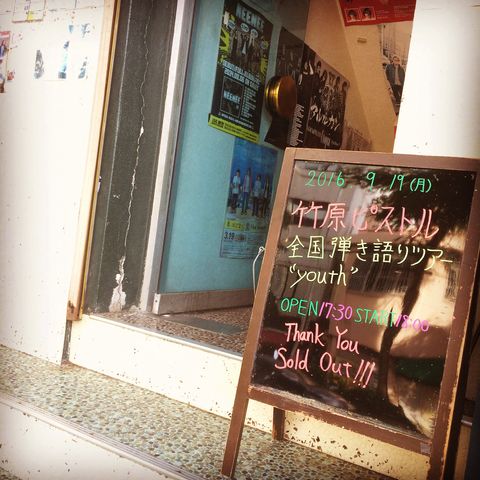 NEEMEE
NEEMEE
3.19
2016. 9. 19(月)
竹原ピストル
全国弾き語りツアー
"youth"
OPEN17:30 START18:00
Thank You
Sold Out!!!